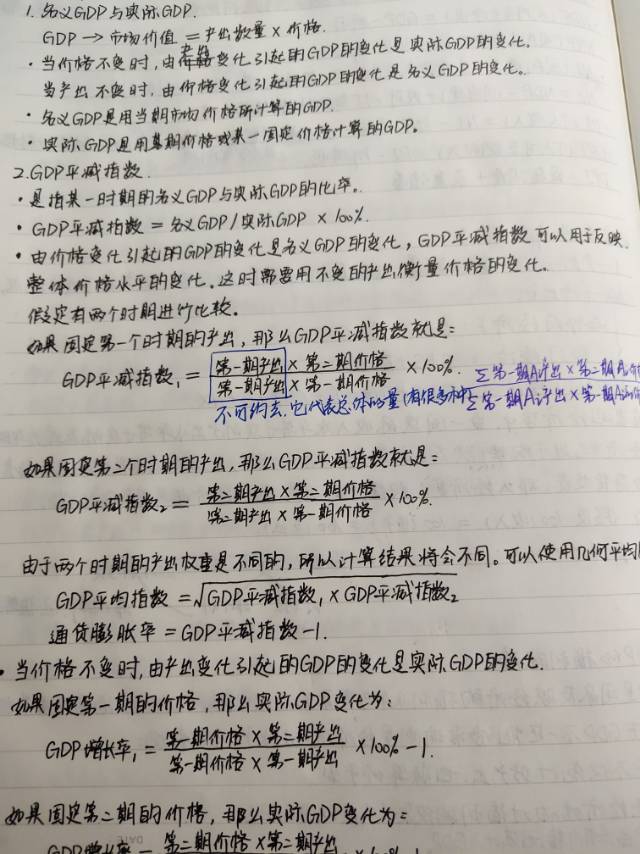 1. 名义GDP与实际GDP.
GDP → 市场价值 = 产出数量 × 价格.
· 当价格不变时,由产出变化引起的GDP的变化是实际GDP的变化。
当产出不变时,由价格变化引起的GDP的变化是名义GDP的变化。
· 名义GDP是用当期市场价格所计算的GDP.
· 实际GDP是用基期价格或某一固定价格计算的GDP。
2.GDP平减指数.
· 是指某一时期的名义GDP与实际GDP的比率。
· GDP平减指数 = 名义GDP/实际GDP × 100%.
· 由价格变化引起的GDP的变化是名义GDP的变化,GDP平减指数可以用于反映
整体价格水平的变化。这时需要用不变的产出衡量价格的变化。
假定有两个时期进行比较。
如果固定第一个时期的产出,那么GDP平减指数就是:
GDP平减指数₁ = 第一期产出 × 第二期价格 / 第一期产出 × 第一期价格 × 100%.
Σ第一期A产出 × 第二期A价 / Σ第一期A产出 × 第一期A
不可约去,它代表总体的量(有很多种)
如果固定第二个时期的产出,那么GDP平减指数就是:
GDP平减指数₂ = 第二期产出 × 第二期价格 / 第二期产出 × 第一期价格 × 100%.
由于两个时期的产出权重是不同的,所以计算结果将会不同。可以使用几何平均
GDP平均指数 = √GDP平减指数₁ × GDP平减指数₂
通货膨胀率 = GDP平减指数 - 1.
· 当价格不变时,由产出变化引起的GDP的变化是实际GDP的变化.
如果固定第一期的价格,那么实际GDP变化为:
GDP增长率₁ = 第一期价格 × 第二期产出 / 第一期价格 × 第一期产出 × 100% - 1.
如果固定第二期的价格,那么实际GDP变化为:
GDP增长率 = 第二期价格 × 第二期产出